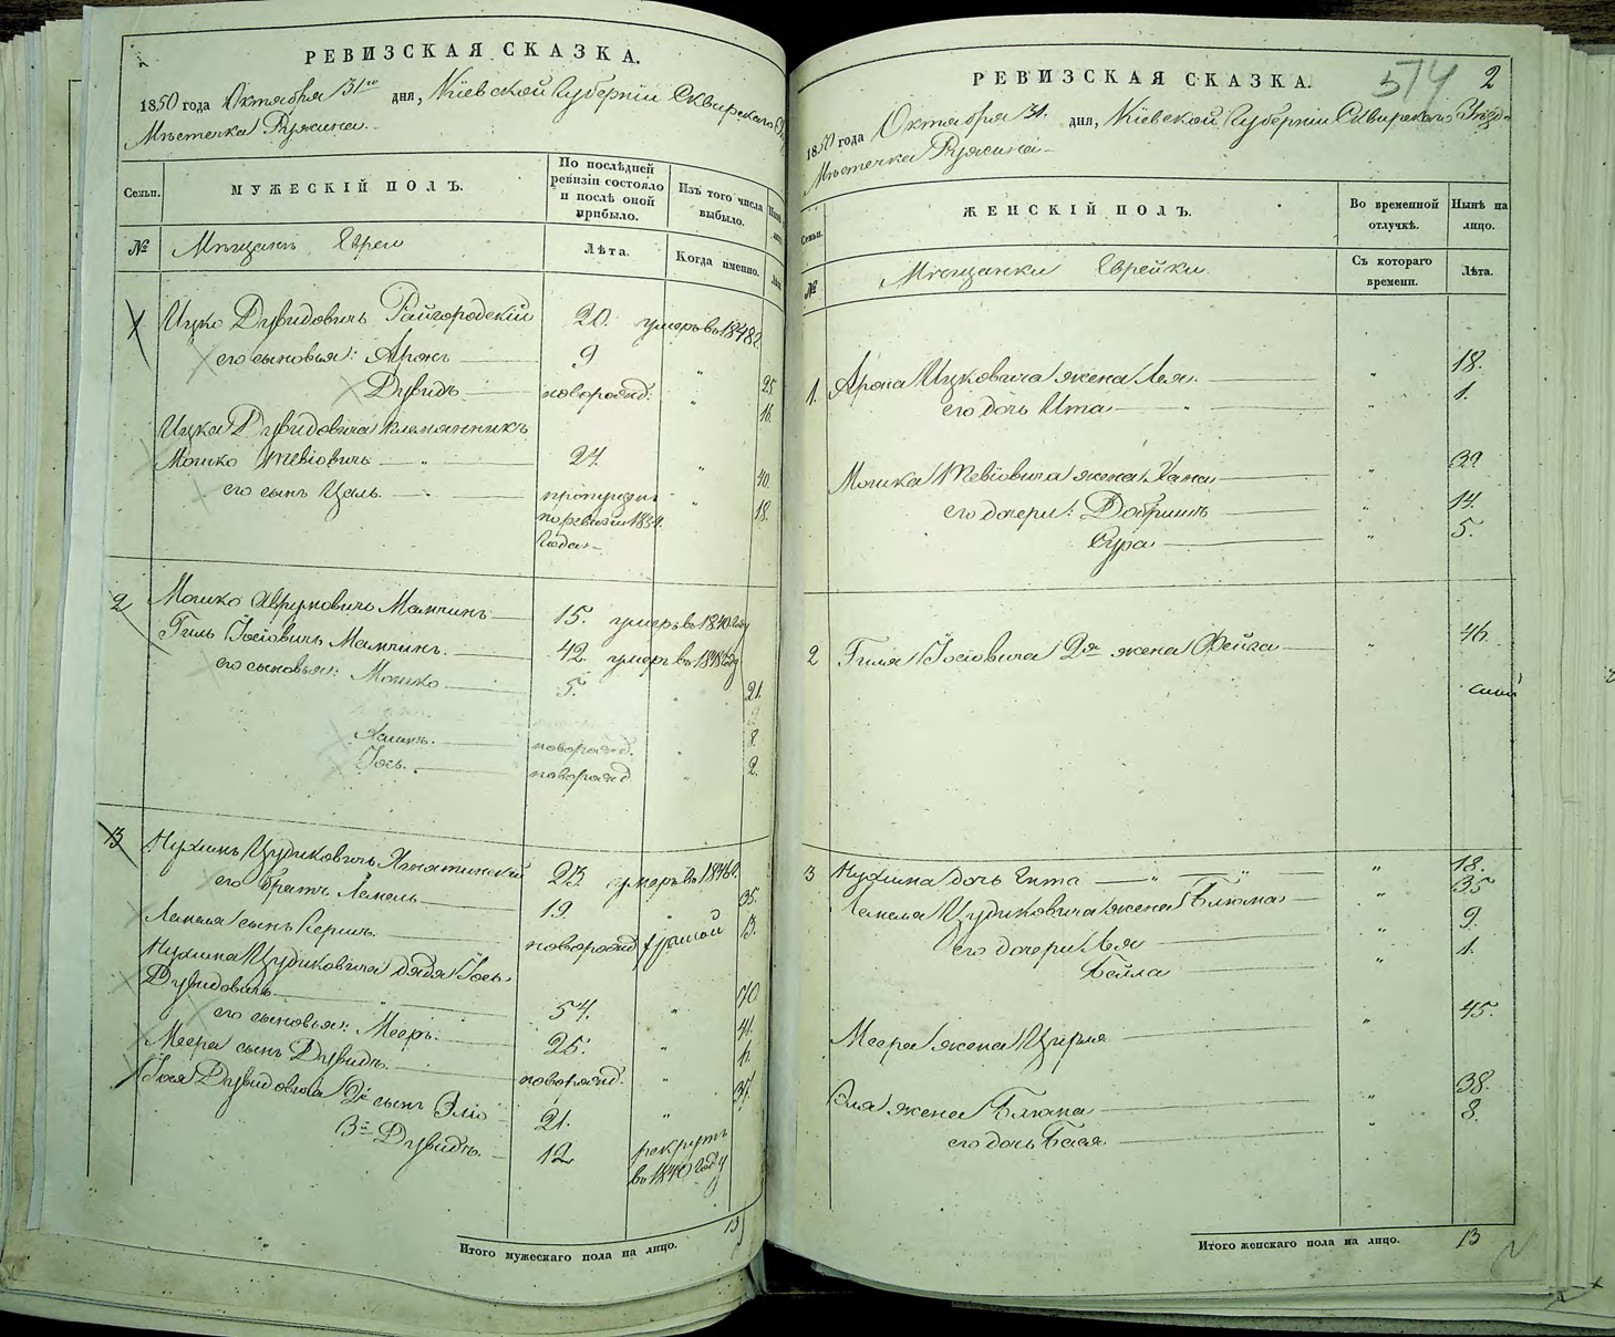 РЕВИЗСКАЯ СКАЗКА.
1850 года Октября 31го дня, Кіевской Губерніи Сквирскаго
Мѣстечка Ружина.
Семьи. МУЖЕСКІЙ ПОЛЪ. По послѣдней ревизіи состояло и послѣ оной прибыло. Изъ того числа выбыло.
№ Мѣщане Евреи Лѣта. Когда именно. Лѣта.
Ицко Дувидовичъ Райгородскій 20. умеръ въ 1848 г.
его сыновья: Аронъ 9 " 25.
Дувидъ новорожд: " 16.
Ицка Дувидовича племянникъ
Мошко Тевіовичъ " 24. " 40.
его сынъ Цаль. пропущен " 18.
по ревизіи 1834.
Года
2 Мошко Аврумовичъ Мамчинъ 15. умеръ въ 1840 году
Гиль Іосіовичъ Мамчинъ. 42. умеръ въ 1848 году
его сыновья: Мошко 5. " 21.
Хаимъ. новорожд. " 8.
Іось. новорожд. " 2.
3 Нухимъ Цудиковичъ 23. умеръ въ 1846 г.
его братъ Лемель 19. " 35.
Лемеля сынъ Бершъ. новорожд. 13.
Нухима Цудиковича дядя Іось
Дувидовичъ 54. " 70
его сыновья: Мееръ. 25. " 41.
Меера сынъ Дувидъ. новорожд. "
Іося Дувидовича 2й сынъ Эліо 21. " 37.
3й Дувидъ. 12 рекрутъ
въ 1840 году
Итого мужескаго пола на лицо. 13
574 2
РЕВИЗСКАЯ СКАЗКА.
1850 года Октября 31. дня, Кіевской Губерніи Сквирскаго Уѣзда
Мѣстечка Ружина
Семьи. ЖЕНСКІЙ ПОЛЪ. Во временной отлучкѣ. Нынѣ на лицо.
№ Мѣщанки Еврейки Съ котораго времени. Лѣта.
1. Арона Ицковича жена Лея. " 18.
его дочь Ита " 1.
Мошка Тевіовича жена Хана " 39
его дочери: Добришъ " 14.
Сура " 5.
2 Гиля Іосіовича 2я жена Фейга " 46.
3 Нухима дочь Гита " " " 18.
Лемеля Цудиковича жена Блюма " 35
его дочери Лея " 9.
Бейла " 1.
Меера жена Цирля " 45.
Эля жена Блюма " 38.
его дочь Бася. " 8.
Итого женскаго пола на лицо. 13